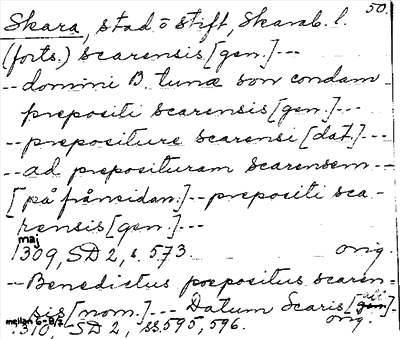 50.
Skara, stad o stift, Skarab. l.
(forts.) scarensis [gen.] ---
-- domini B. tunæ son condam
prepositi scarensis [gen.] ---
-- prepositure scarensi [dat.] ---
-- ad preposituram scarensem --
[på frånsidan.] -- prepositi sca-
rensis [gen.] ---
maj
1309, SD 2, s. 573. orig.
-- Benedictus prepositus scaren-
sis [nom.] --- Datum Scaris [abl.]
mellan 6-8/7
1310, SD 2, ss. 595, 596. orig.